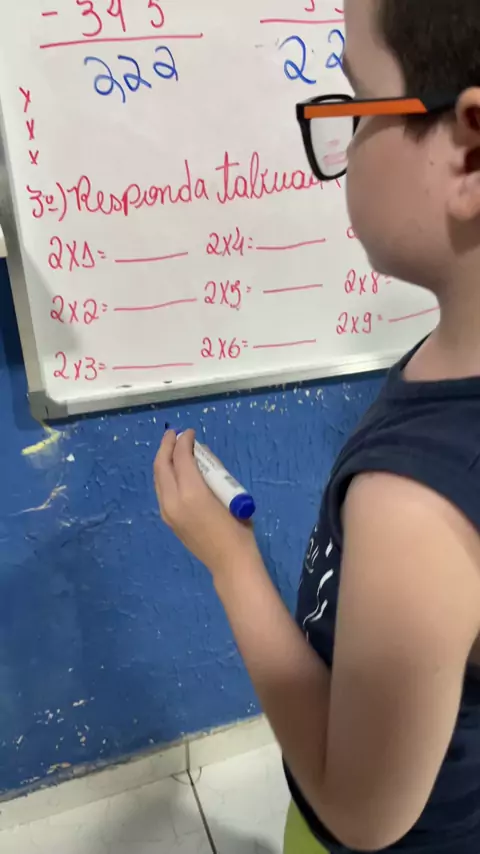 - 345
222 22
x
x
x
3º) Responda
2x1= 2x4=
2x2= 2x5= 2x8=
2x3= 2x6= 2x9=